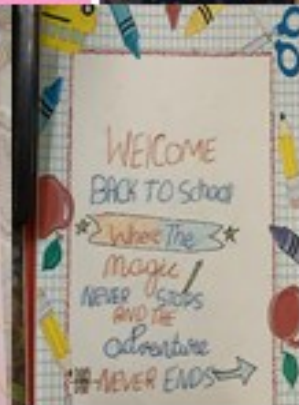 WElCOME
BACK TO School
Where The
magic
NEVER STOPS
AND THE
adventure
NEVER ENDS